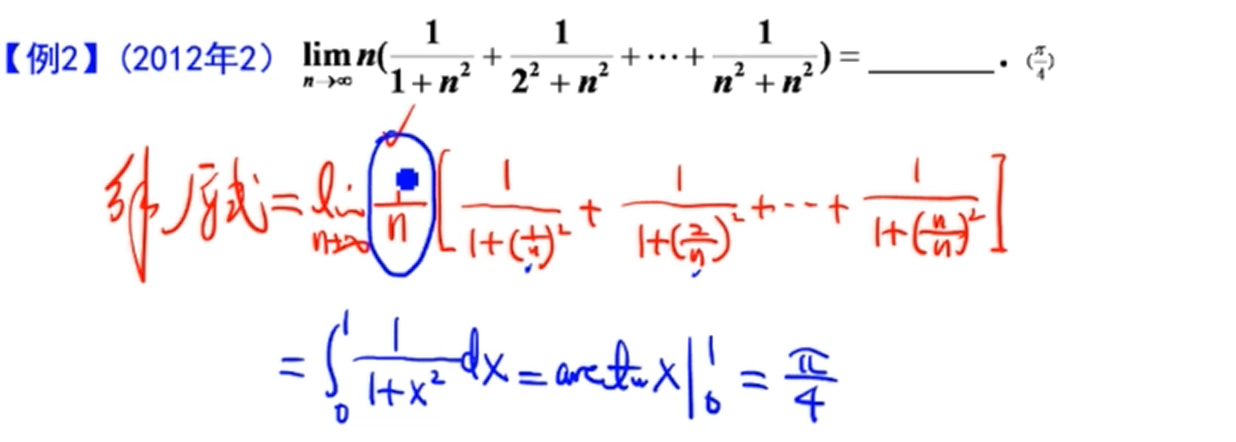 【例2】(2012年2) lim n→∞ n(1/(1+n²) + 1/(2²+n²) + ⋯ + 1/(n²+n²)) = ________. (π/4)
解 原式 = lim n→∞ 1/n [1/(1+(1/n)²) + 1/(1+(2/n)²) + ⋯ + 1/(1+(n/n)²)]
= ∫₀¹ 1/(1+x²) dx = arctan x |₀¹ = π/4